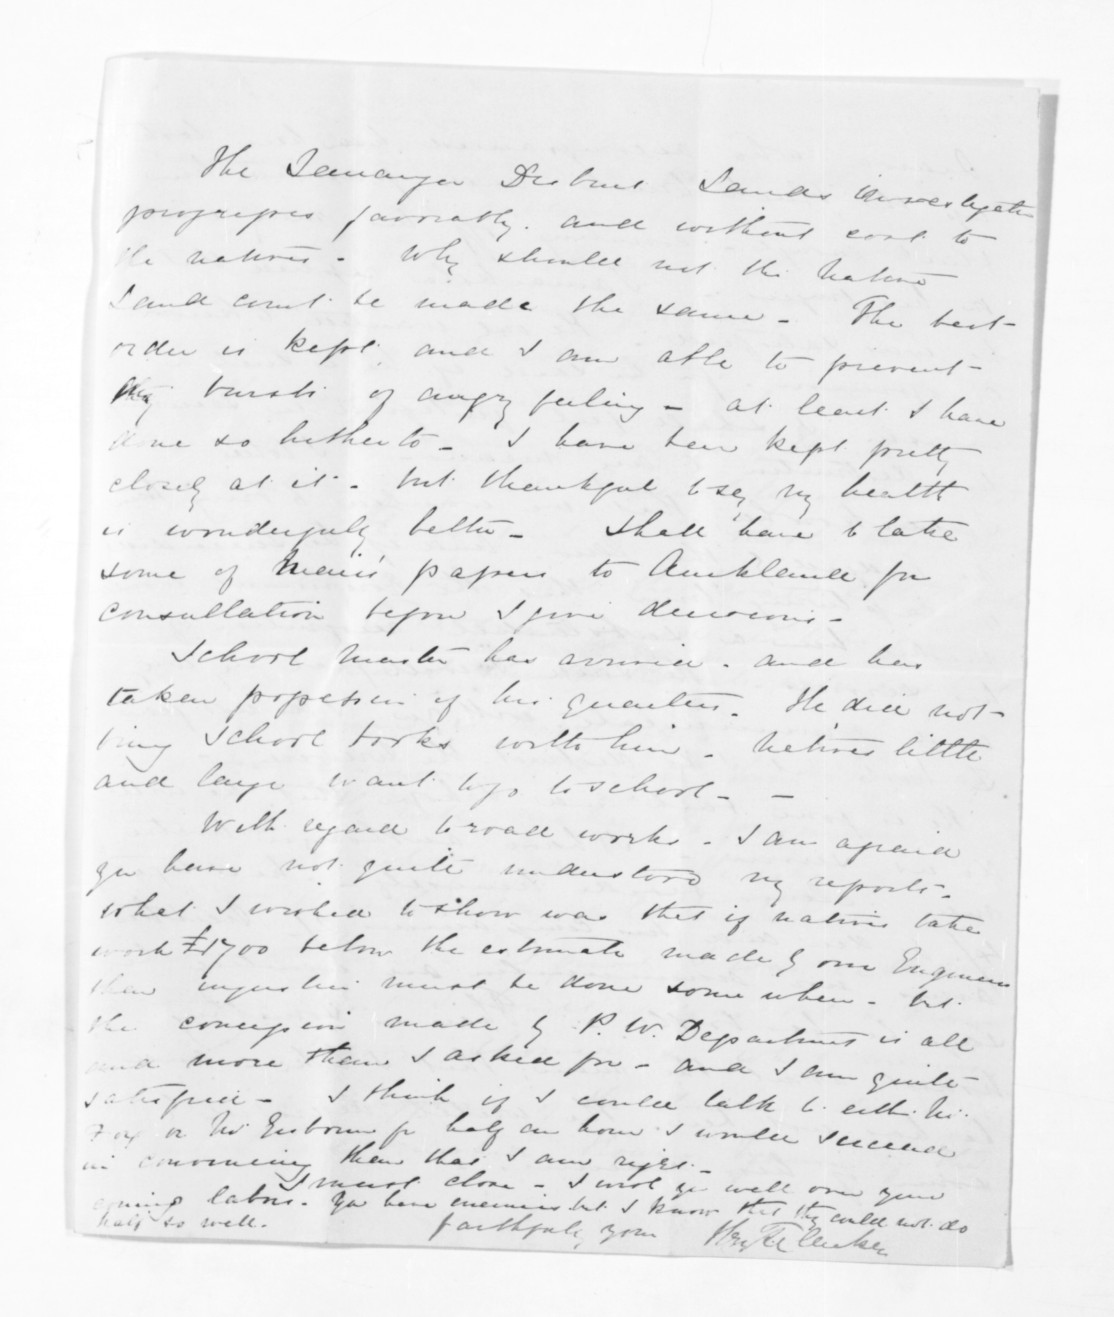 The Tauranga District Lands investigation
progresses favorably. and without cost to
the natives - Why should not the Native
Land Court be made the same - The best
order is kept, and I am able to prevent
any bursts of angry feeling - at least I have
done so hitherto - I have been kept pretty
closely at it - but thankful to say my health
is wonderfully better - Shall have to take
some of Mair's papers to Auckland for
consultation before I give decisions -
School Master has arrived. and has
taken possession of his quarters. He did not
bring School books with him - Natives little
and large want to go to School - -
With regard to road works - I am afraid
you have not quite understood my reports -
what I wished to show was that if natives take
work £1700 below the estimate made by our Engineers
then injustice must be done some where - but
the concession made by P. W. Department is all
and more than I asked for - and I am quite
satisfied - I think if I could talk to either Mr.
Fox or Mr Gisborne for half an hour I would succeed
in convincing them that I am right -
I must close - I wish you well over your
coming labors - You have enemies but I know that they could not do
half so well.
faithfully yours Hry T Clarke